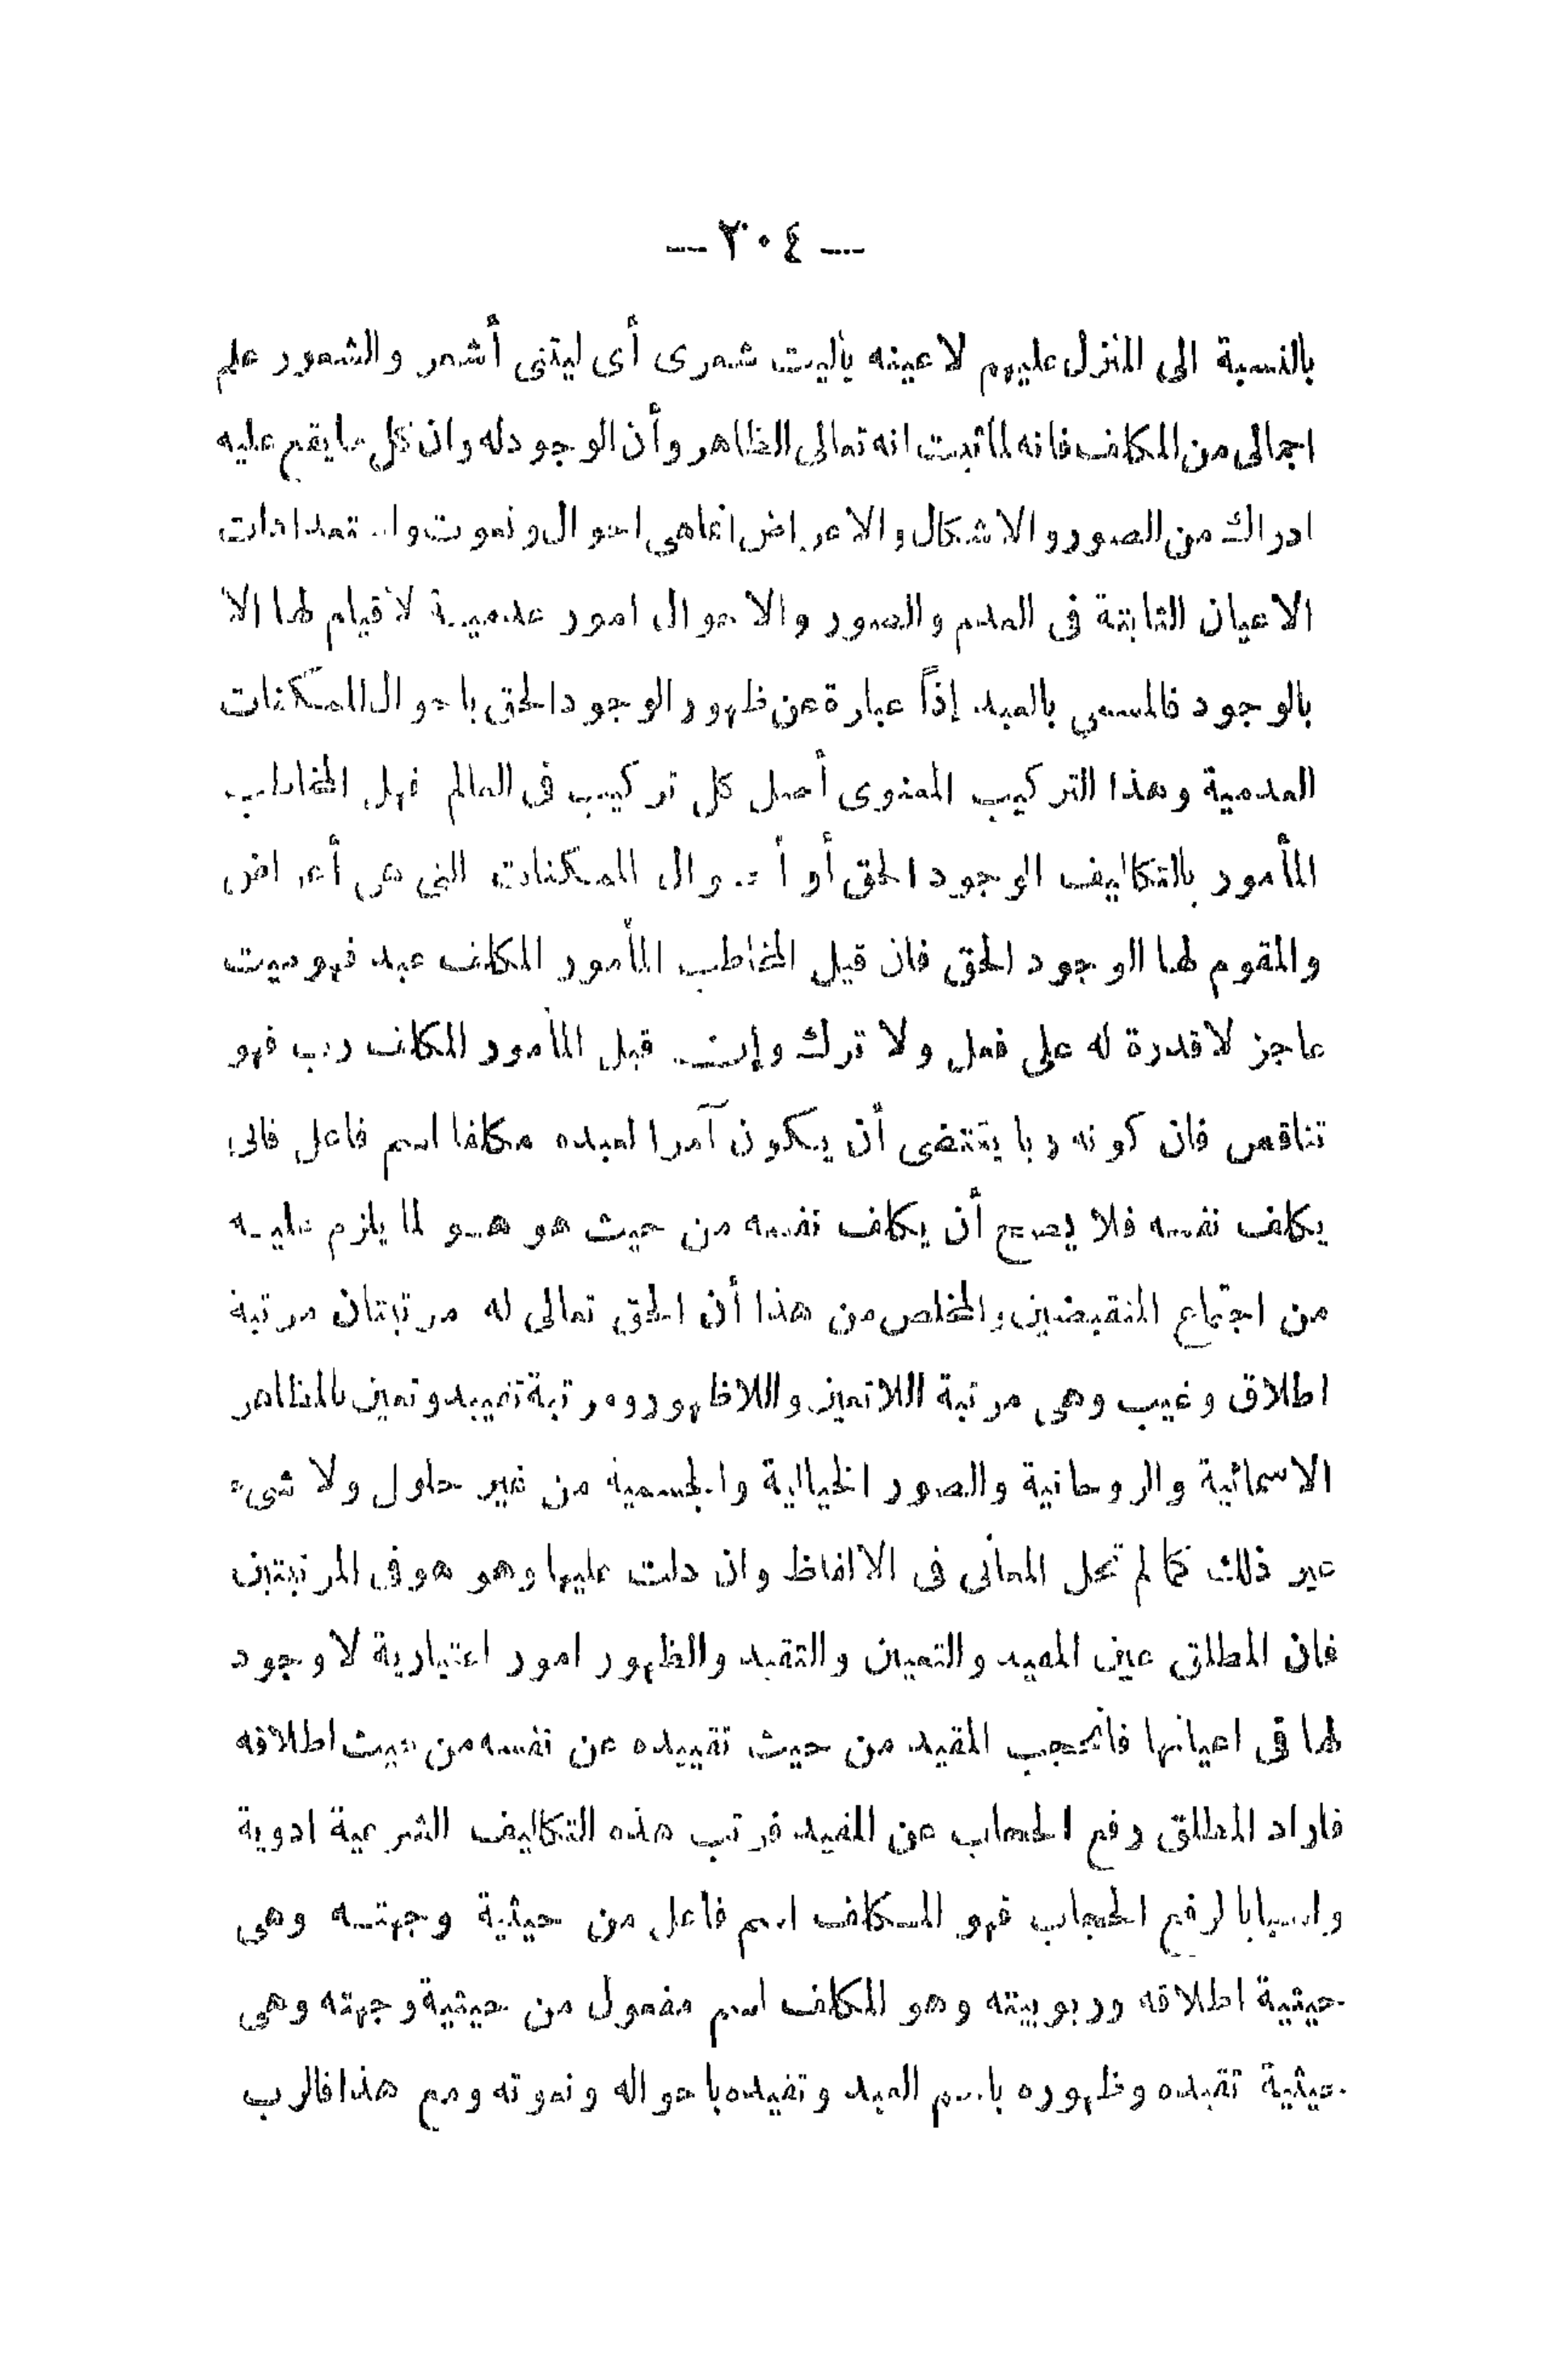 — ٢٠٤ —
بالنسبة الى المنزل عليهم لا عينه ياليت شعرى أى ليتنى أشعر والشعور علم
اجمالى من المكلف فانه لما ثبت انه تعالى الظاهر وأن الوجود له وان كل ما يقع عليه
ادراك من الصور والاشكال والاعراض انما هى احوال ونعوت واستعدادات
الاعيان الثابتة فى العدم والصور والاحوال امور عدمية لا قيام لها الا
بالوجود فالمسمى بالعبد إذاً عبارة عن ظهور الوجود الحق باحوال الممكنات
العدمية وهذا التركيب المعنوى أصل كل تركيب فى العالم فهل المخاطب
المأمور بالتكاليف الوجود الحق أو أحوال الممكنات التى هى أعراض
والمقوم لها الوجود الحق فان قيل المخاطب المأمور المكلف عبد فهو ميت
عاجز لا قدرة له على فعل ولا ترك وإن قيل المأمور المكلف رب فهو
تناقص فان كونه ربا يقتضى أن يكون آمرا لعبده مكلفا اسم فاعل فانى
يكلف نفسه فلا يصح أن يكلف نفسه من حيث هو هو لما يلزم عليه
من اجتماع النقيضين والمخلص من هذا أن الحق تعالى له مرتبتان مرتبة
اطلاق وغيب وهى مرتبة اللاتعين واللاظهور ومرتبة تقييد وتعين بالمظاهر
الاسمائية والروحانية والصور الخيالية والجسمية من غير حلول ولا شىء
غير ذلك كما لم تحل المعانى فى الالفاظ وان دلت عليها وهو هو فى المرتبتين
فان المطلق عين المقيد والتعيين والتقيد والظهور امور اعتبارية لا وجود
لها فى اعيانها فانحجب المقيد من حيث تقييده عن نفسه من حيث اطلاقه
فاراد المطلق رفع الحجاب عن المقيد فرتب هذه التكاليف الشرعية ادوية
واسبابا لرفع الحجاب فهو المكلف اسم فاعل من حيثية وجهته وهى
حيثية اطلاقه وربوبيته وهو المكلف اسم مفعول من حيثية وجهته وهى
حيثية تقيده وظهوره باسم العبد وتقيده باحواله ونعوته ومع هذا فالرب